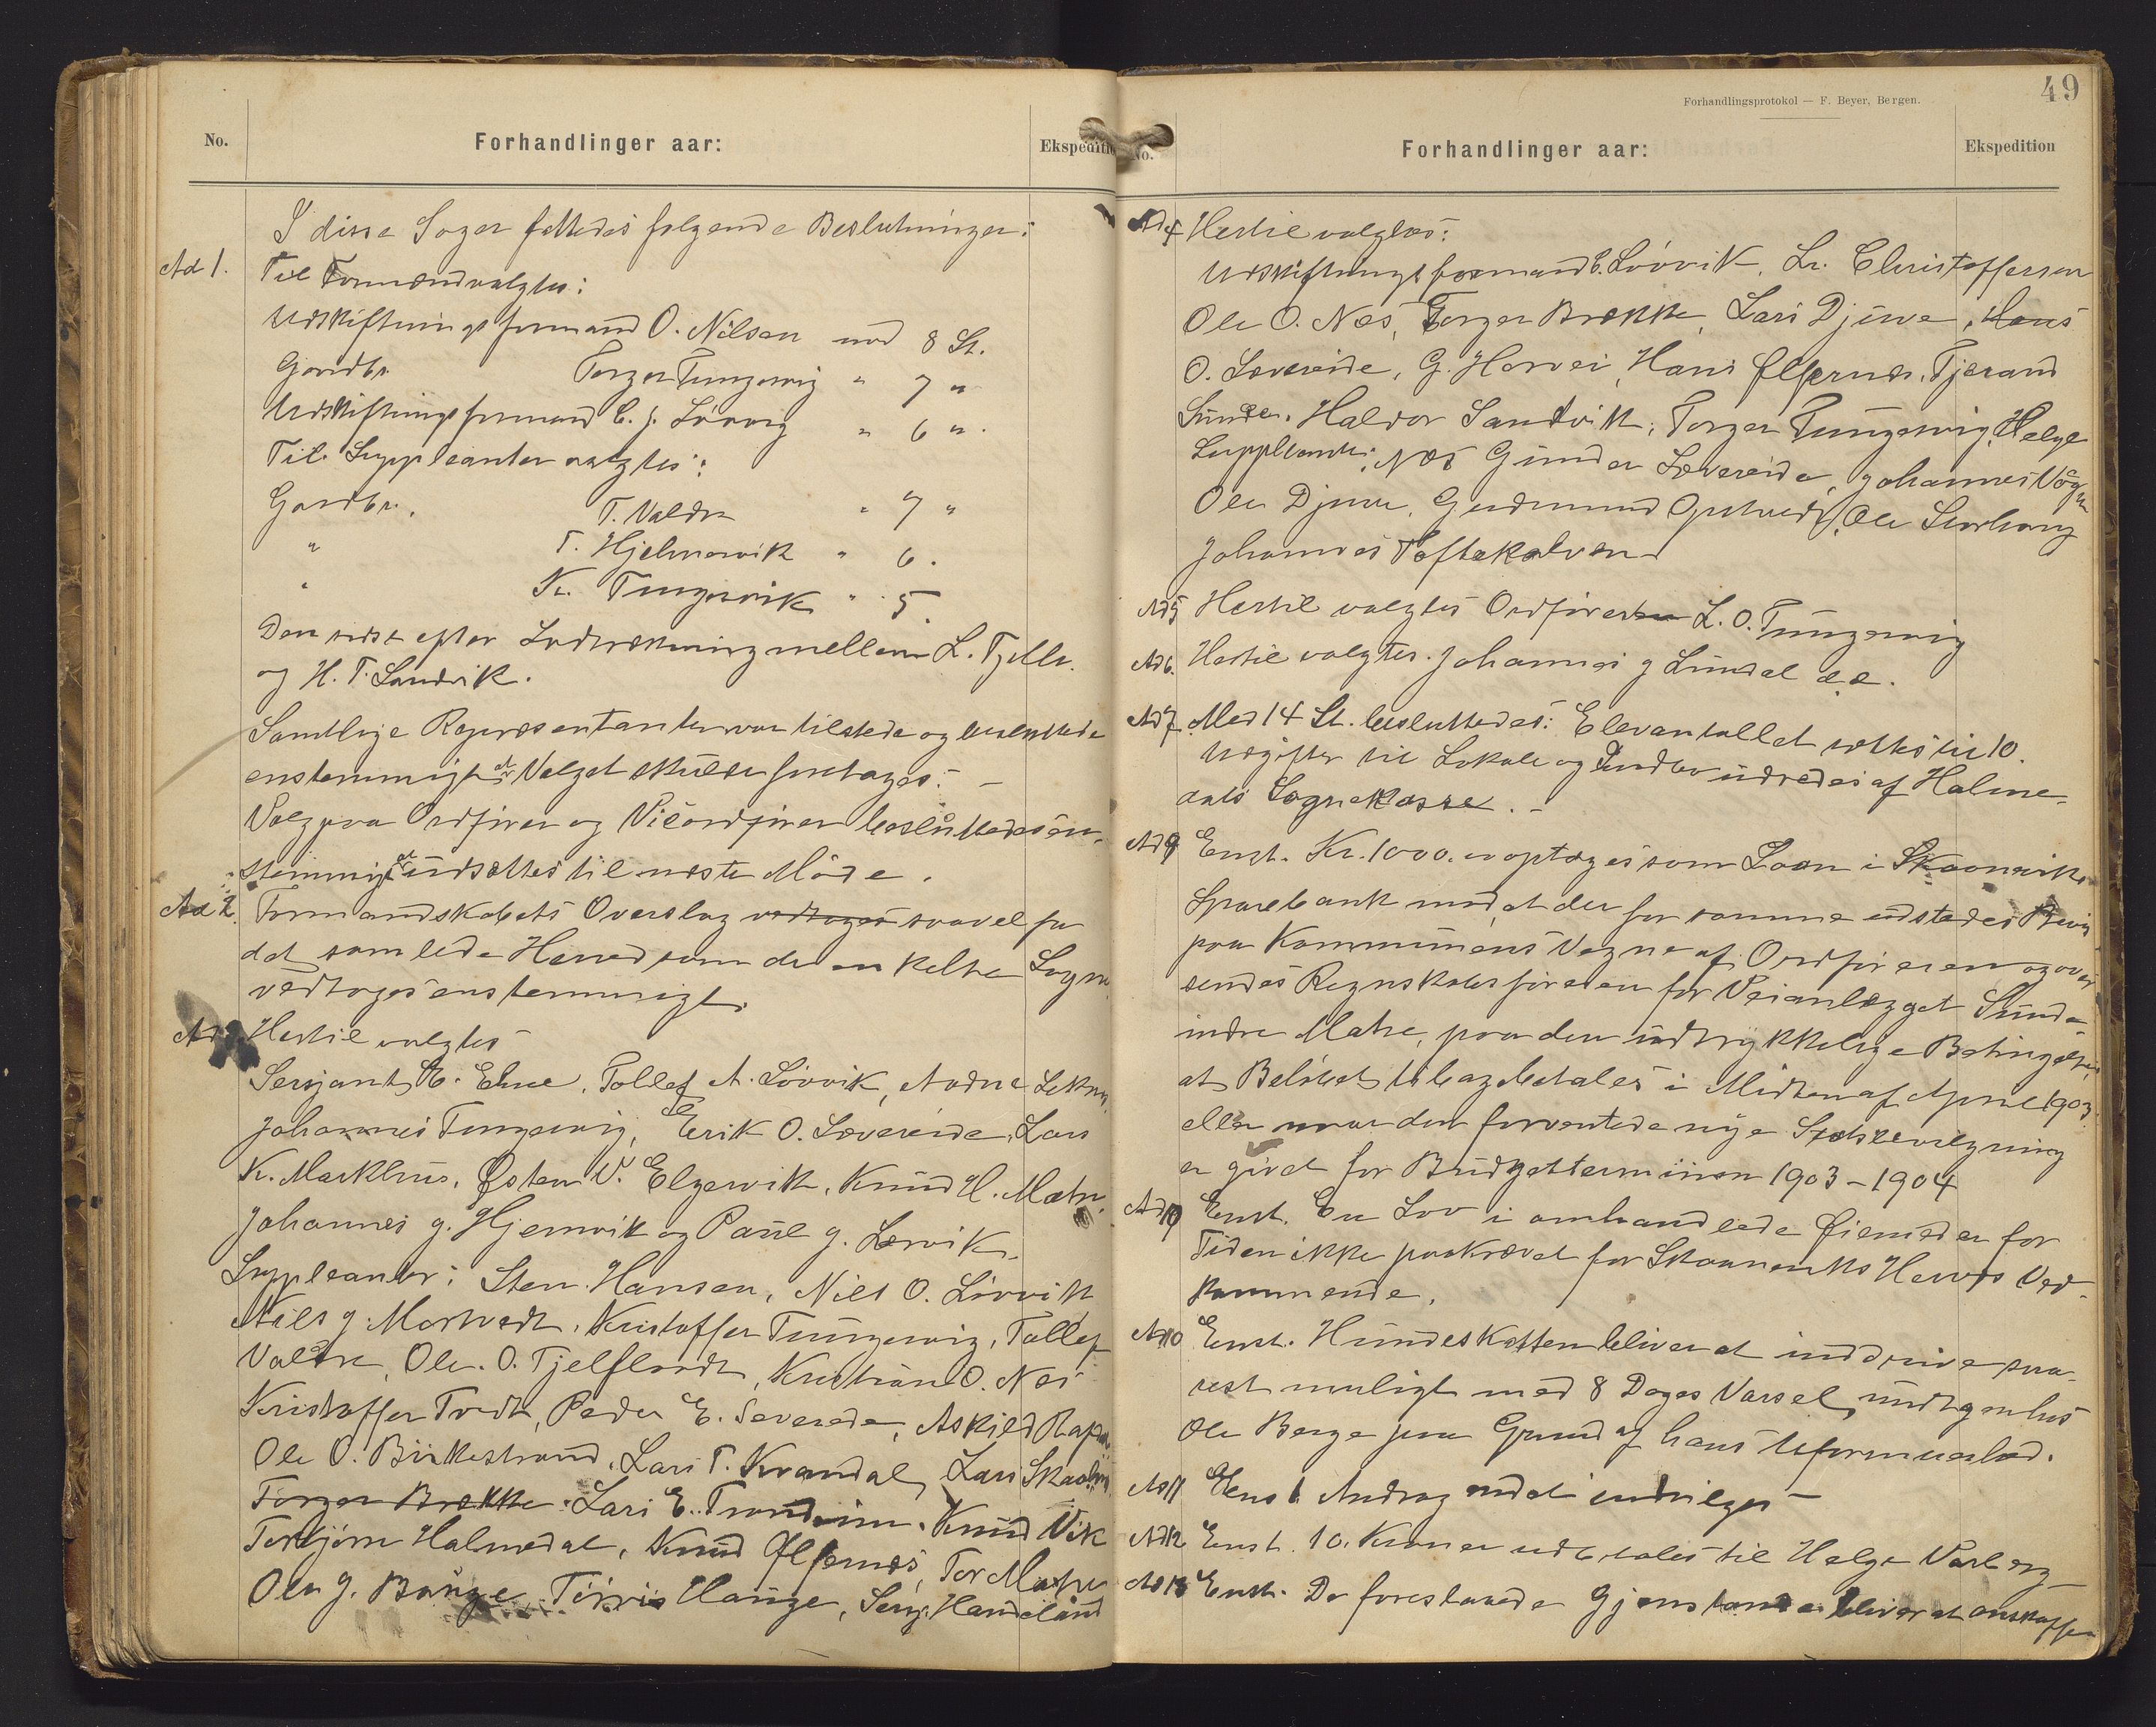 No.
Forhandlinger aar:
Ekspeditio
I disse Sager fattedes følgende Beslutninger:
Ad 1.
Til Formænd valgtes:
Udskiftningsformand O. Nilsen med 8 St.
Gardbr. Torger Tungesvig " 7 "
Udskiftningsformand C. J. Løvvig " 6 ".
Til Suppleanter valgtes:
Gardbr. T. Valdre " 7 "
" T. Hjelmervik " 6.
" Kr. Tungesvik " 5.
Den sidste efter Lodtrækning mellem L. Tjelle.
og H. T. Sandvik.
Samtlige Repræsentanter var tilstede og besluttede
enstemmigt at Valget skulde foretages. –
Valg paa Ordfører og Viceordfører besluttedes en-
stemmigt at udsættes til næste Møde.
Ad 2.
Formandskabets Overslag vedtoges saavel for
det samlede Herred som de enkelte Sogne
vedtoges enstemmigt.
Ad 3.
Hertil valgtes
Sersjant E. Ebne, Tollef A. Løvvik, Aadne
Johannes Tungesvig, Erik O. Sævereide, Lars
K. Markhus, Østen V. Elgervik, Knud H. Matre
Johannes J. Hjemvik og Paul J. Lervik.
Suppleanter: Sten Hansen, Niels O. Løvvik
Niels J. Mortvedt, Kristoffer Tungesvig, Tollef
Valdre, Ole O. Tjelflaadt, Kristian O. Næs
Kristoffer Tvedt, Peder E. Severeide, Askild
Ole O. Birkestrand, Lars T. Kvandal, Lars
Torger Brekke. Lars E. Trondeim. Knud Vik
Torbjørn Halmedal, Knud Ølfernes, Tor Matre
Ole J. Bauge, Tørris Hauge, Serg. Handeland
49
Forhandlingsprotokol — F. Beyer, Bergen.
No.
Forhandlinger aar:
Ekspedition
Ad 4
Hertil valgtes:
Udskiftningsformand C. Løvvik, Lr. Christoffersen
Ole O. Næs, Torger Brekke, Lars Djuve, Hans
O. Sævereide, G. Hervei, Hans Ølfernes, Tjerand
Sunde, Haldor Sandvik, Torger Tungesvig, Helge
Suppleanter: Næs Gunder Sævereide, Johannes Vågen
Ole Djuve, Gudmund Opstvedt, Ole Storhaug
Johannes Toftekalven
Ad 5
Hertil valgtes Ordføreren L. O. Tungesvig
Ad 6.
Hertil valgtes Johannes J Lundal d. e.
Ad 7
Med 14 St. besluttedes: Elevantallet sættes til 10.
Udgifter til Lokale og Inventar udredes af Halme-
dals Sognekasse. –
Ad 8
Enst. Kr. 1000. – optages som Laan i Skaanevik
Sparebank mod, at der for samme udstedes Bevis
paa Kommunens Vegne af Ordføreren og over
sendes Regnskabsføreren for Veianlægget Sunde –
indre Matre, paa den udtrykkelige Betingelse
at Beløbet tilbagebetales i Midten af April 1903
eller naar den forventede nye Statsbevilgning
er givet for Budgetterminen 1903 – 1904
Ad 9
Enst. En Lov i omhandlede Øiemed er for
Tiden ikke paakrævet for Skaaneviks Herreds Ved-
kommende.
Ad 10
Enst. Hundeskatten bliver at inddrive snar-
rest muligt med 8 Dages Varsel, undtagen hos
Ole Berge paa Grund af hans Uformuenhed.
Ad 11
Enst. Andragendet indvilges –
Ad 12
Enst. 10. Kroner udbetales til Helge Varberg –
Ad 13
Enst. De foreslaaede Gjenstande bliver at anskaffe